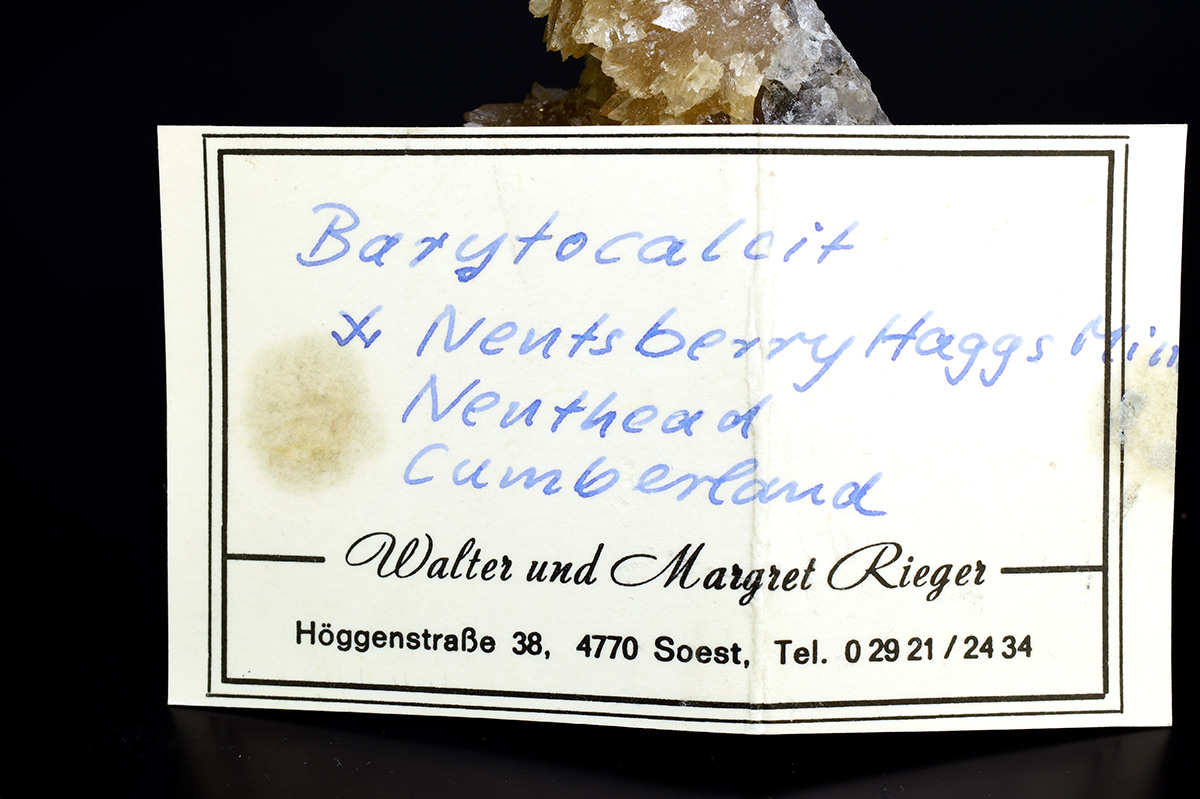 Barytocalcit
x Nentsberry Haggs Min
Nenthead
Cumberland
Walter und Margret Rieger
Höggenstraße 38, 4770 Soest, Tel. 0 29 21 / 24 34